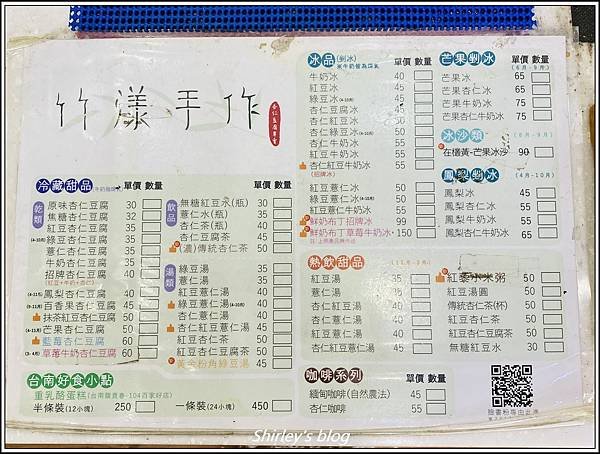 竹漾手作
冷藏甜品
單價 數量
乾類
原味杏仁豆腐 30
焦糖杏仁豆腐 32
紅豆杏仁豆腐 35
(4-10月) 綠豆杏仁豆腐 35
薏仁杏仁豆腐 35
牛奶杏仁豆腐 35
招牌杏仁豆腐 40
(紅豆+牛奶+杏仁)
鳳梨杏仁豆腐 40
百香果杏仁豆腐 45
抹茶紅豆杏仁豆腐 50
芒果杏仁豆腐 50
藍莓杏仁豆腐 60
草莓牛奶杏仁豆腐 60
單價 數量
飲品
無糖紅豆水(瓶) 30
薏仁水(瓶) 35
杏仁茶(瓶) 40
杏仁豆腐茶 45
(濃)傳統杏仁茶 50
湯類
綠豆湯 35
薏仁湯 35
紅豆薏仁湯 40
綠豆薏仁湯(4-10月) 40
杏仁薏仁湯 40
杏仁紅豆薏仁湯 45
紅豆杏仁茶 50
紅豆杏仁豆腐茶 50
黃金粉角綠豆湯 45
台南好食小點
重乳酪蛋糕(台南饅賣卷-104百家好店)
半條裝(12小塊) 250
一條裝(24小塊) 450
冰品(剉冰)
單價 數量
牛奶冰 40
紅豆冰 45
綠豆冰(4-10月) 45
杏仁豆腐冰 45
杏仁紅豆冰 50
杏仁綠豆冰 50
杏仁牛奶冰 55
杏仁紅豆牛奶冰 55
(招牌冰)
紅豆薏仁冰 50
綠豆薏仁冰(4-10月) 50
紅豆薏仁牛奶冰 55
鮮奶布丁招牌冰 99
鮮奶布丁草莓牛奶冰 150
芒果剉冰
(6月-9月)
芒果冰 65
芒果杏仁冰 65
芒果牛奶冰 75
芒果杏仁牛奶冰 75
冰沙類
(6月-9月)
在欉黃-芒果冰沙 90
鳳梨剉冰
(4月-10月)
鳳梨冰 45
鳳梨杏仁冰 50
鳳梨牛奶冰 55
鳳梨杏仁牛奶冰 65
熱飲甜品
紅豆湯 35
薏仁湯 35
紅豆薏仁湯 40
杏仁薏仁湯 40
杏仁紅豆薏仁湯 45
紅藜小米粥 50
紅豆湯圓 50
傳統杏仁茶(杯) 50
紅豆杏仁茶 50
紅豆杏仁豆腐茶 50
無糖紅豆水 30
咖啡系列
緬甸咖啡(自然農法) 45
杏仁咖啡 55
Shirley's blog